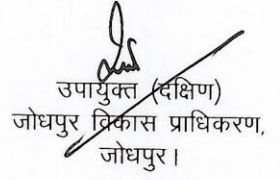 उपायुक्त (दक्षिण)
जोधपुर विकास प्राधिकरण,
जोधपुर।